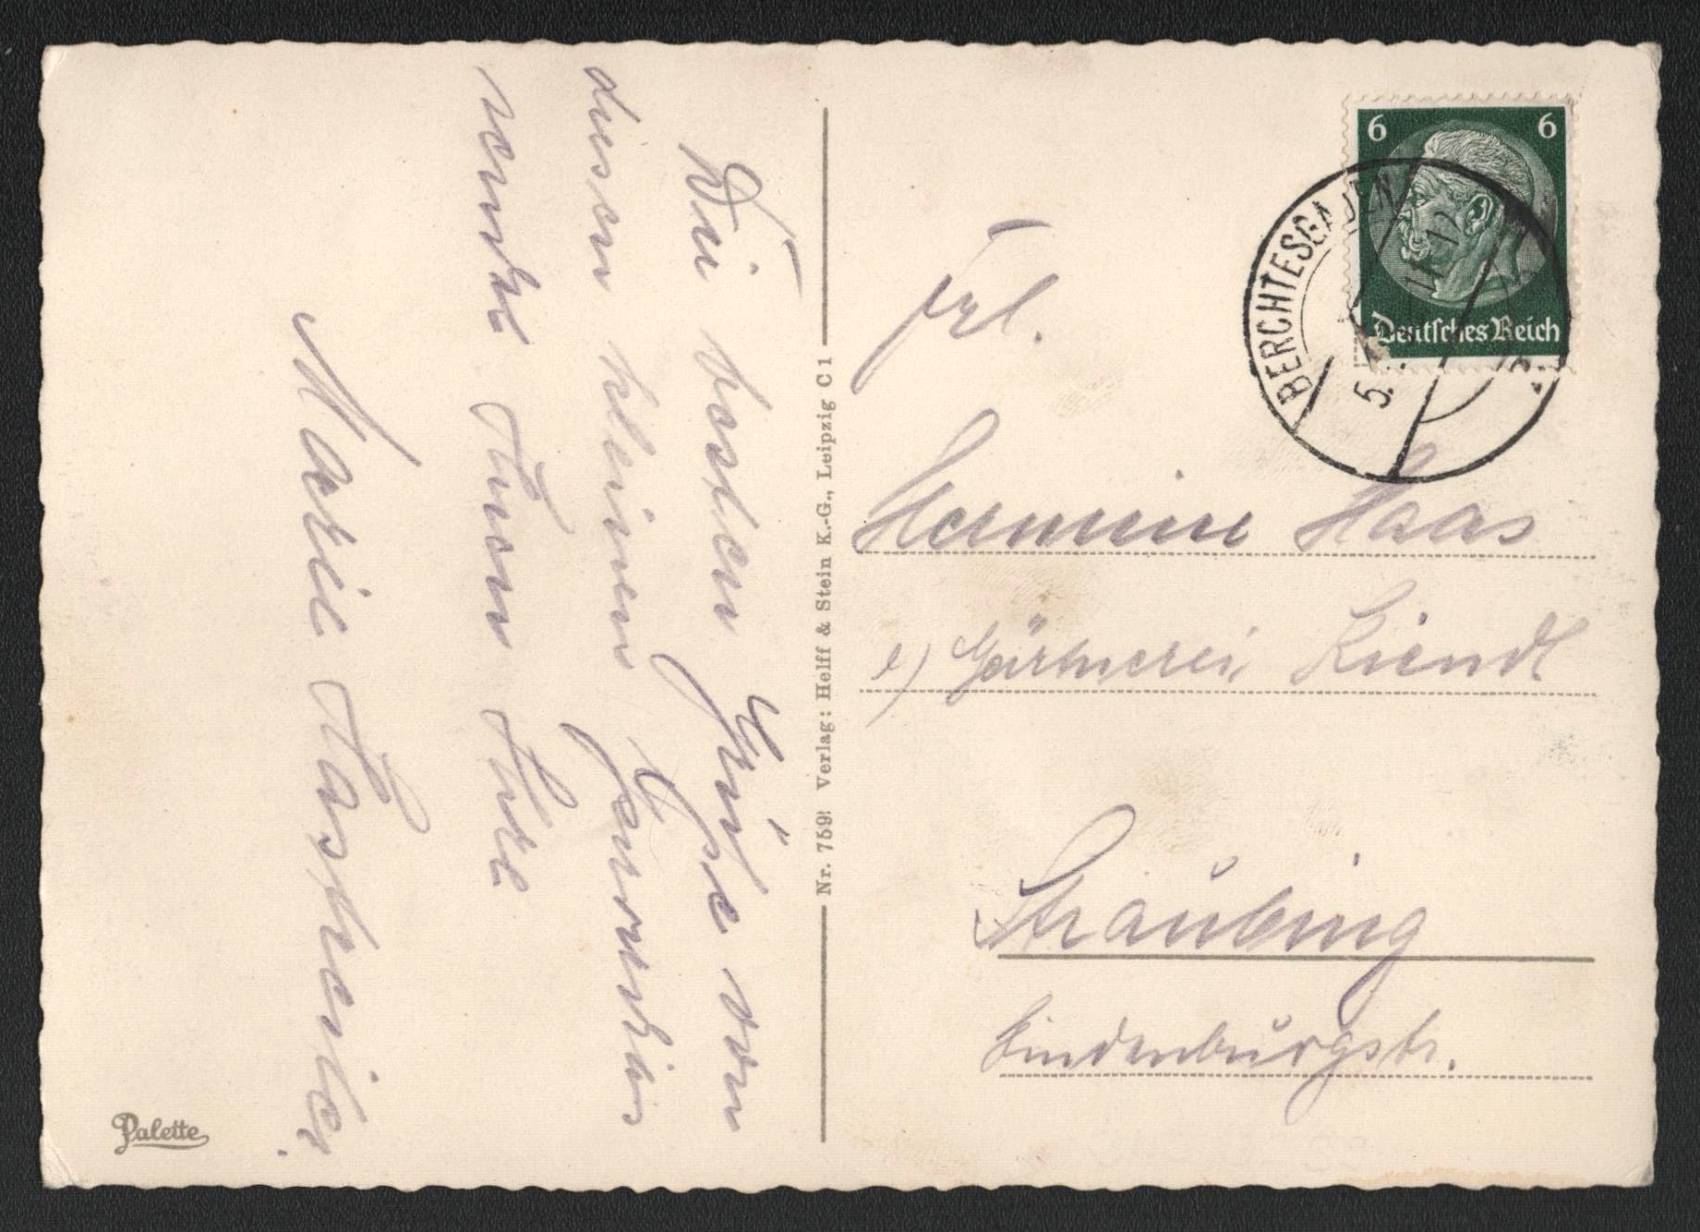 Die besten Grüße von
diesem kleinen Paradies
sendet Ihnen Ihre
Marie
Nr. 759! Verlag: Helff & Stein K.-G., Leipzig C 1
Palette
6 6
Deutsches Reich
BERCHTESGADEN
5.
Frl.
Hermine Haas
Gärtnerei Kiendl
Straubing
Hindenburgstr.